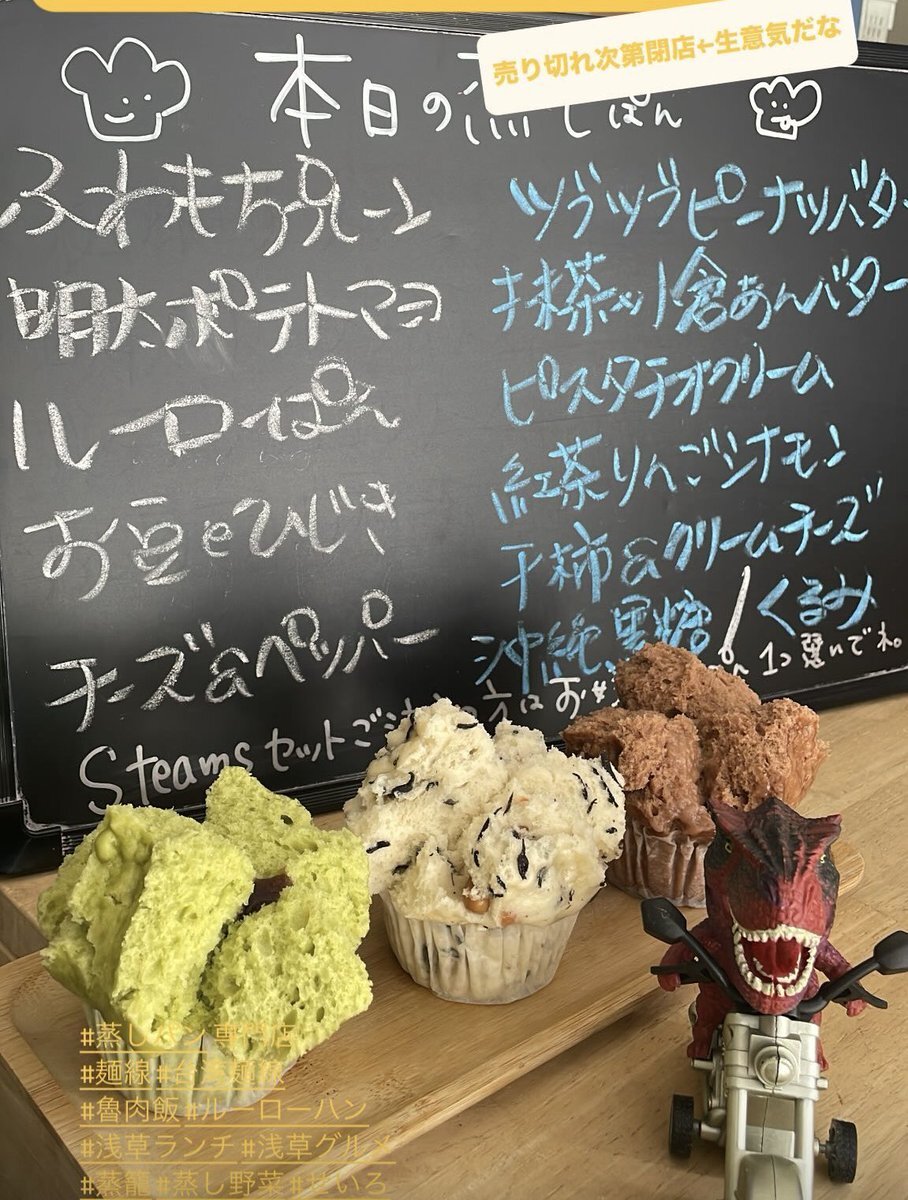 売り切れ次第閉店←生意気だな
本日の蒸しぱん
ふわもちプレーン
明太ポテトマヨ
ルーローぱん
お豆とひじき
チーズ&ペッパー
ツブツブピーナツバター
抹茶小倉あんバター
ピスタチオクリーム
紅茶りんごシナモン
干柿&クリームチーズ
沖縄黒糖/くるみ
Steamsセットご
方はお
1コ選いでね。
#蒸しパン専門店
#麺線 #台湾麺線
#魯肉飯 #ルーローハン
#浅草ランチ #浅草グルメ
#蒸籠 #蒸し野菜 #せいろ